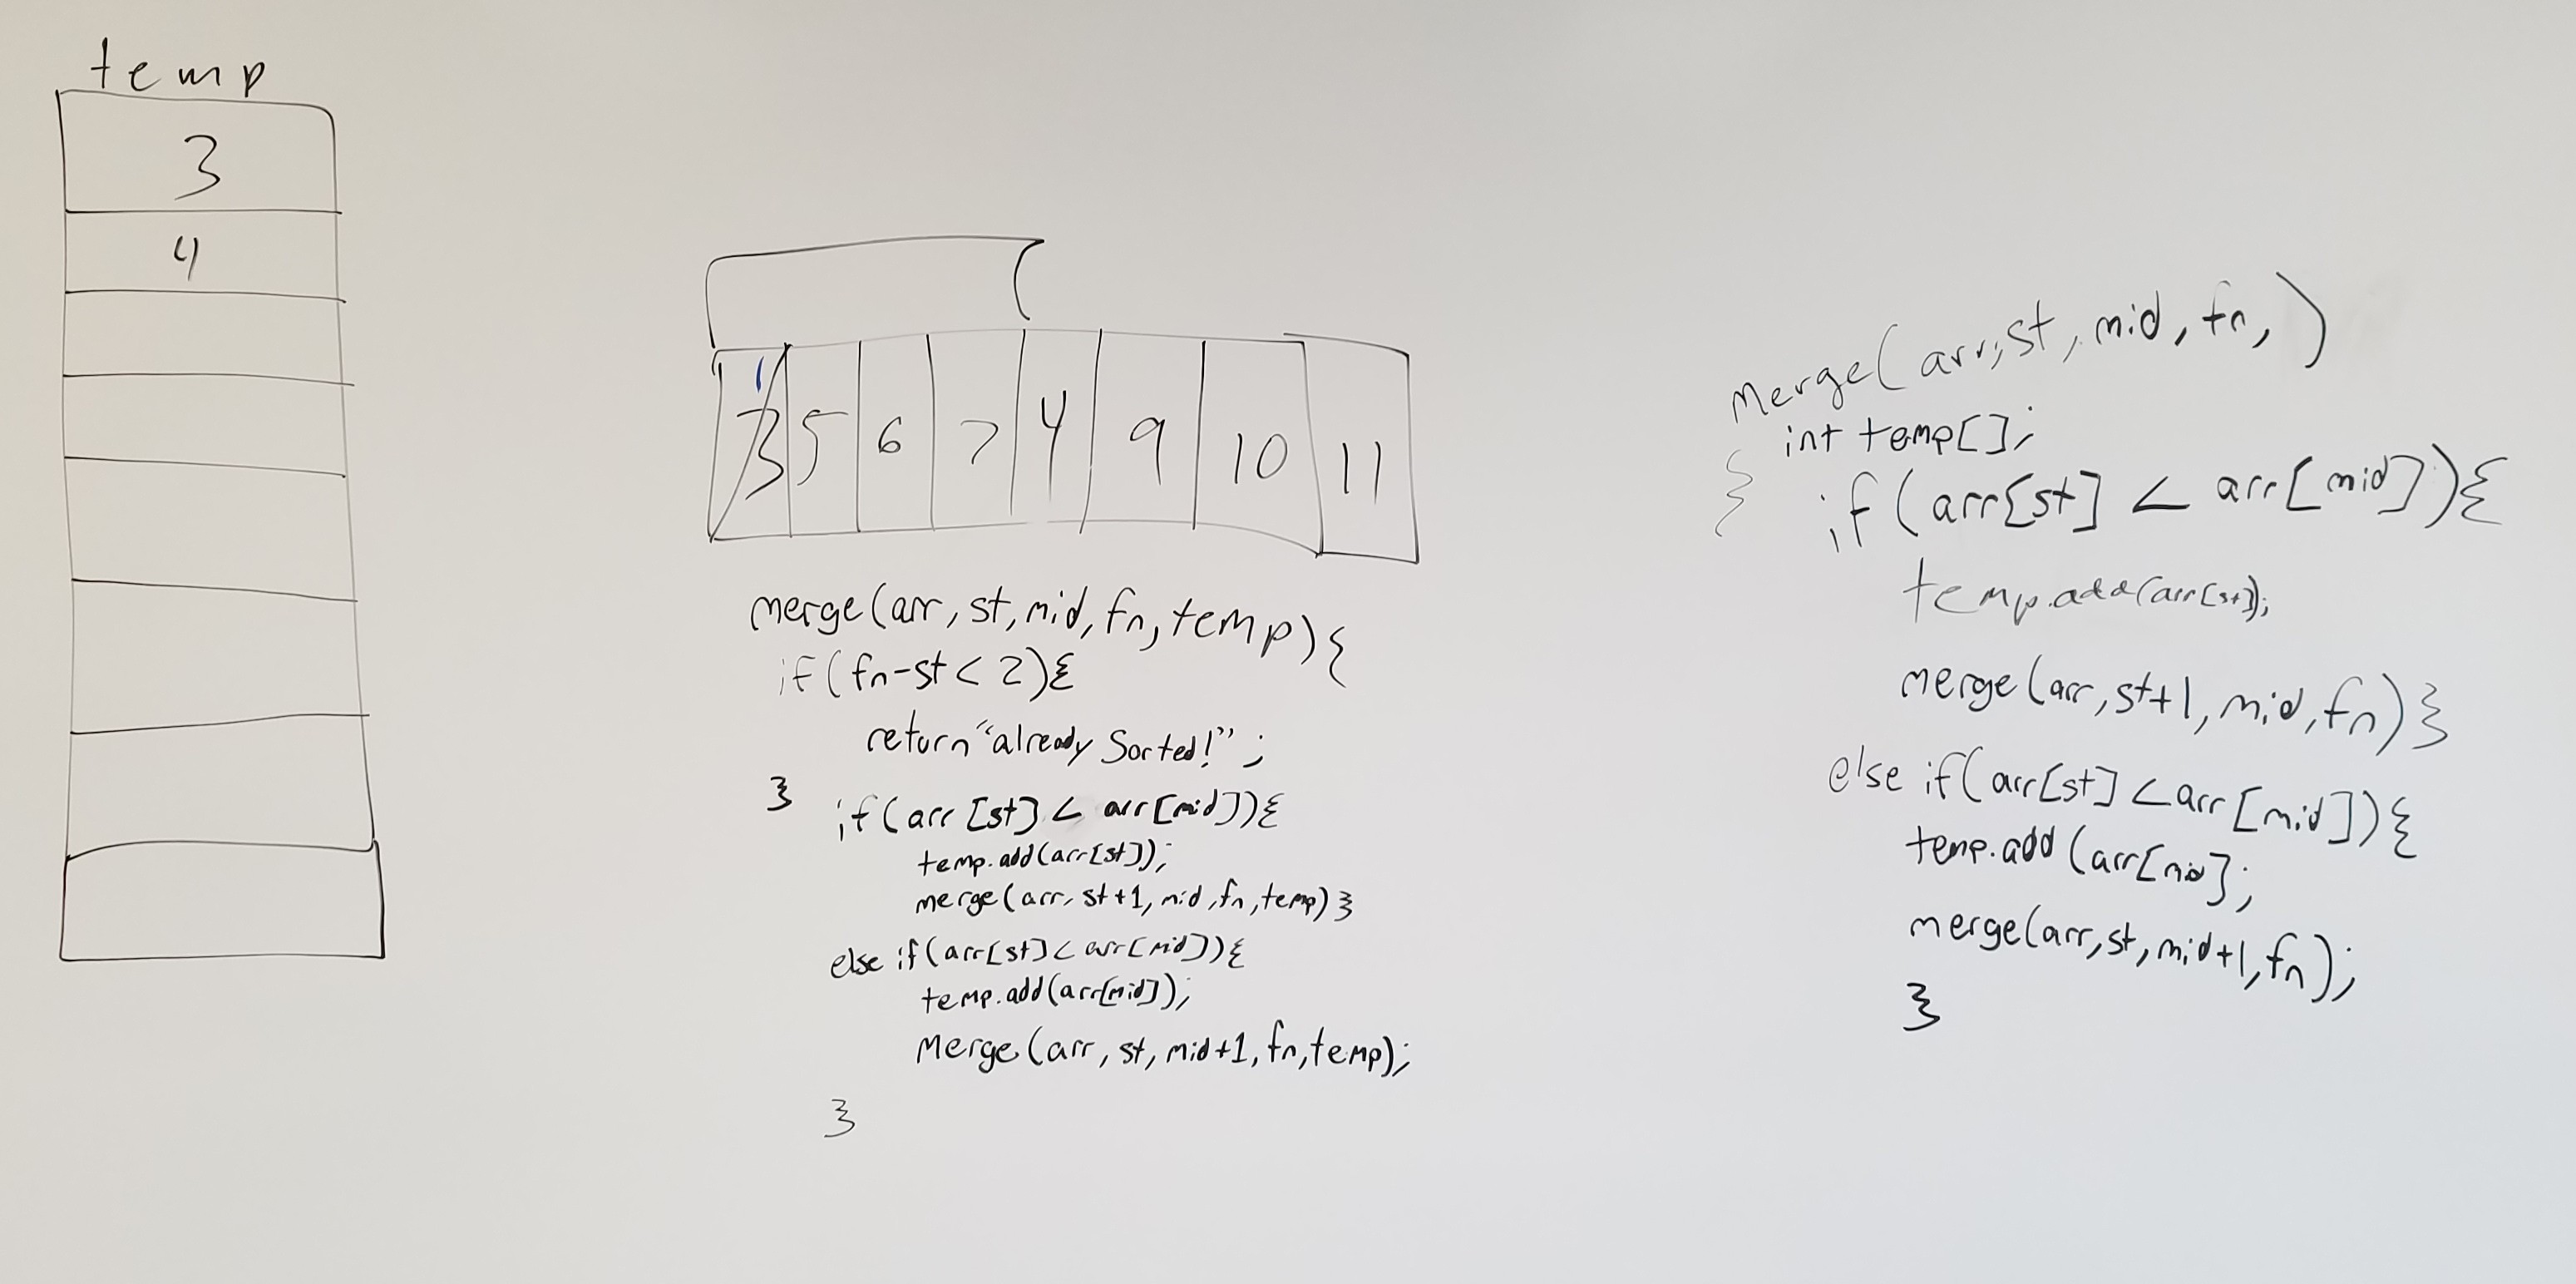 temp
3
4
1
3 5 6 7 4 9 10 11
merge(arr, st, mid, fn, temp){
if(fn-st < 2){
return "already Sorted!";
}
if(arr[st] < arr[mid]){
temp.add(arr[st]);
merge(arr, st+1, mid, fn, temp)}
else if(arr[st] < arr[mid]){
temp.add(arr[mid]);
Merge(arr, st, mid+1, fn, temp);
}
Merge(arr, st, mid, fn, )
int temp[];
} if(arr[st] < arr[mid]){
temp.add(arr[st]);
merge(arr, st+1, mid, fn)}
else if(arr[st] < arr[mid]){
temp.add(arr[mid];
merge(arr, st, mid+1, fn);
}